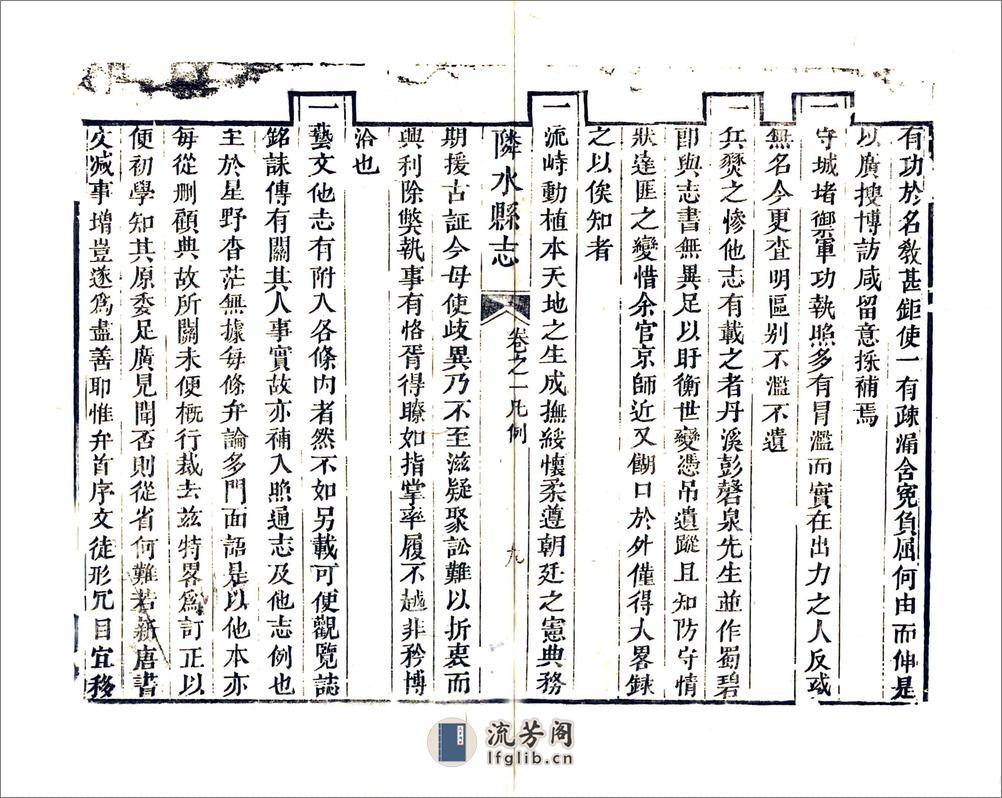 有功於名敎甚鉅使一有疎漏含寃負屈何由而伸是
以廣搜博訪咸留意採補焉
一守城堵禦軍功執照多有冒濫而實在出力之人反或
無名今更査明區别不濫不遺
一兵燹之慘他志有載之者丹溪彭磬泉先生並作蜀碧
卽與志書無異足以盱衡世變憑吊遺蹤且知防守情
狀達匪之變惜余官京師近又餬口於外僅得大畧錄
之以俟知者
一流峙動植本天地之生成撫綏懷柔遵朝廷之憲典務
隣水縣志
卷之一凡例
九
期援古証今毋使歧異乃不至滋疑聚訟難以折衷而
興利除獘執事有恪胥得瞭如指掌率履不越非矜博
洽也
一藝文他志有附入各條內者然不如另載可便觀覽誌
銘誄傳有關其人事實故亦補入照通志及他志例也
至於星野杳茫無據每條弁論多門面語是以他本亦
每從刪顧典故所關未便概行裁去兹特畧爲訂正以
便初學知其原委足廣見聞否則從省何難若新唐書
文减事增豈遂爲盡善耶惟弁首序文徒形冗目宜移
流芳阁
lfglib.cn